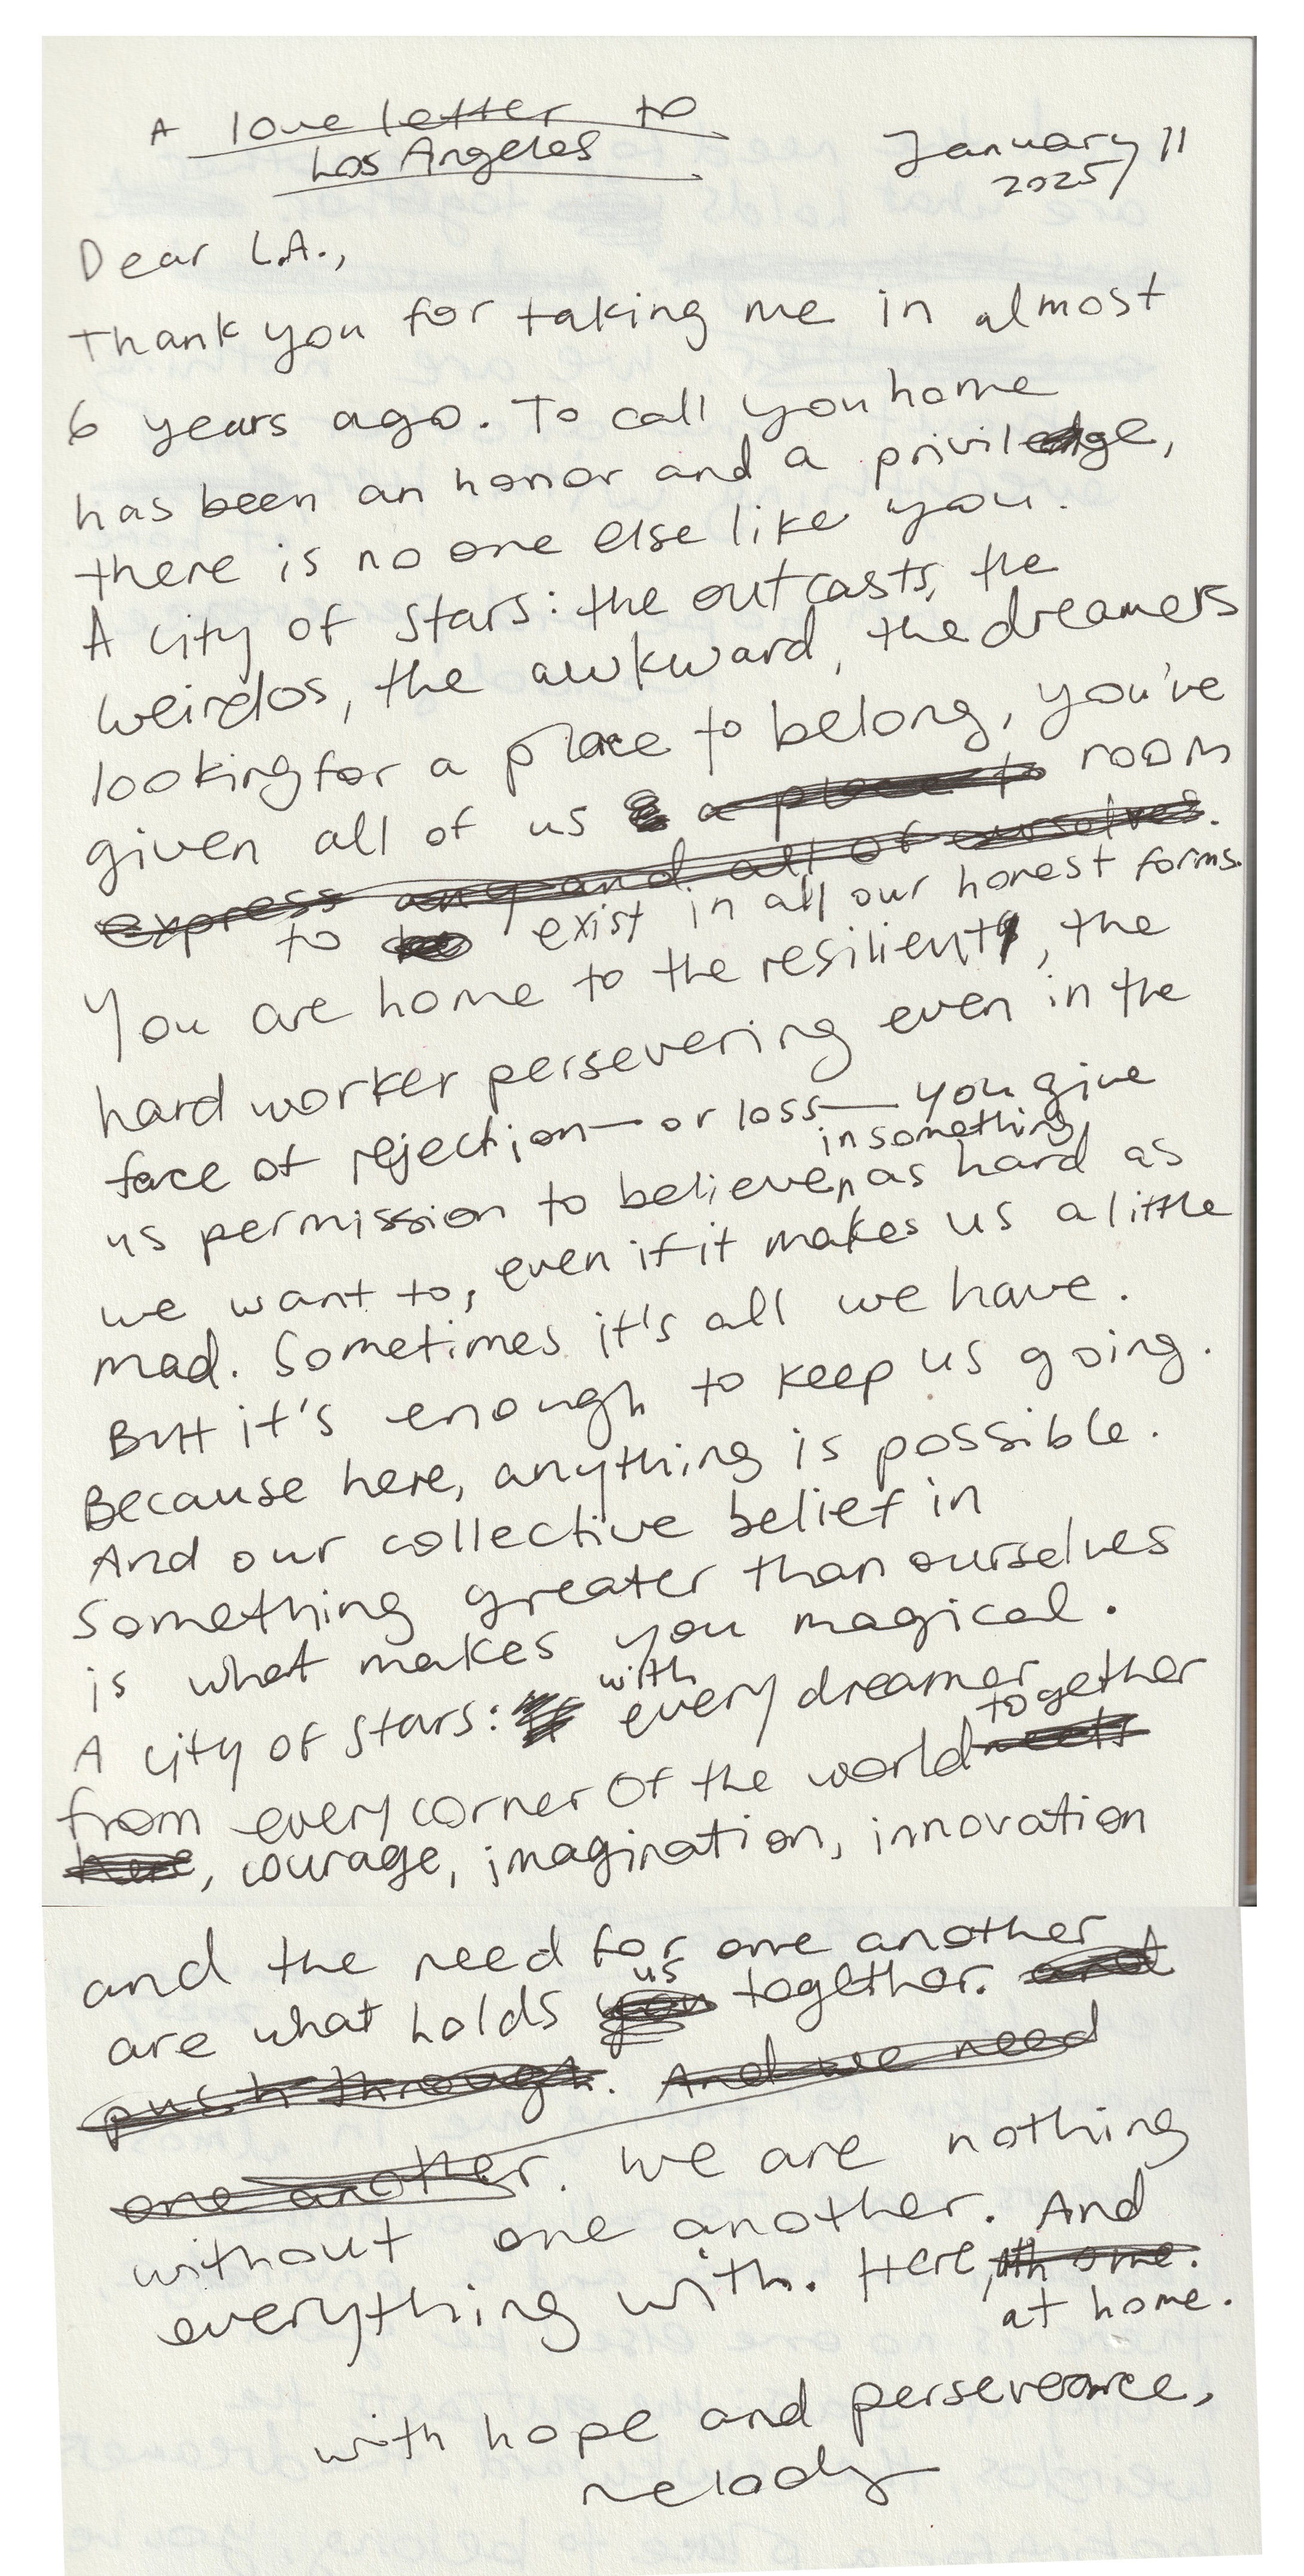 A love letter to
Los Angeles
January 11
2025
Dear L.A.,
Thank you for taking me in almost
6 years ago. To call you home
has been an honor and a privilege,
there is no one else like you.
A city of stars: the outcasts, the
weirdos, the awkward, the dreamers
looking for a place to belong, you've
given all of us a place to room
express any and all of ourselves.
to be exist in all our honest forms.
You are home to the resilient, the
hard worker persevering even in the
face of rejection—or loss—you give
in something
us permission to believe, as hard as
we want to, even if it makes us a little
mad. Sometimes it's all we have.
But it's enough to keep us going.
Because here, anything is possible.
And our collective belief in
something greater than ourselves
is what makes you magical.
with
A city of stars: every dreamer
together
from every corner of the world meets
here, courage, imagination, innovation
and the need for one another
us
are what holds you together. and
push through. And we need
one another. We are nothing
without one another. And
everything with. Here, home.
at home.
with hope and perseverance,
melody